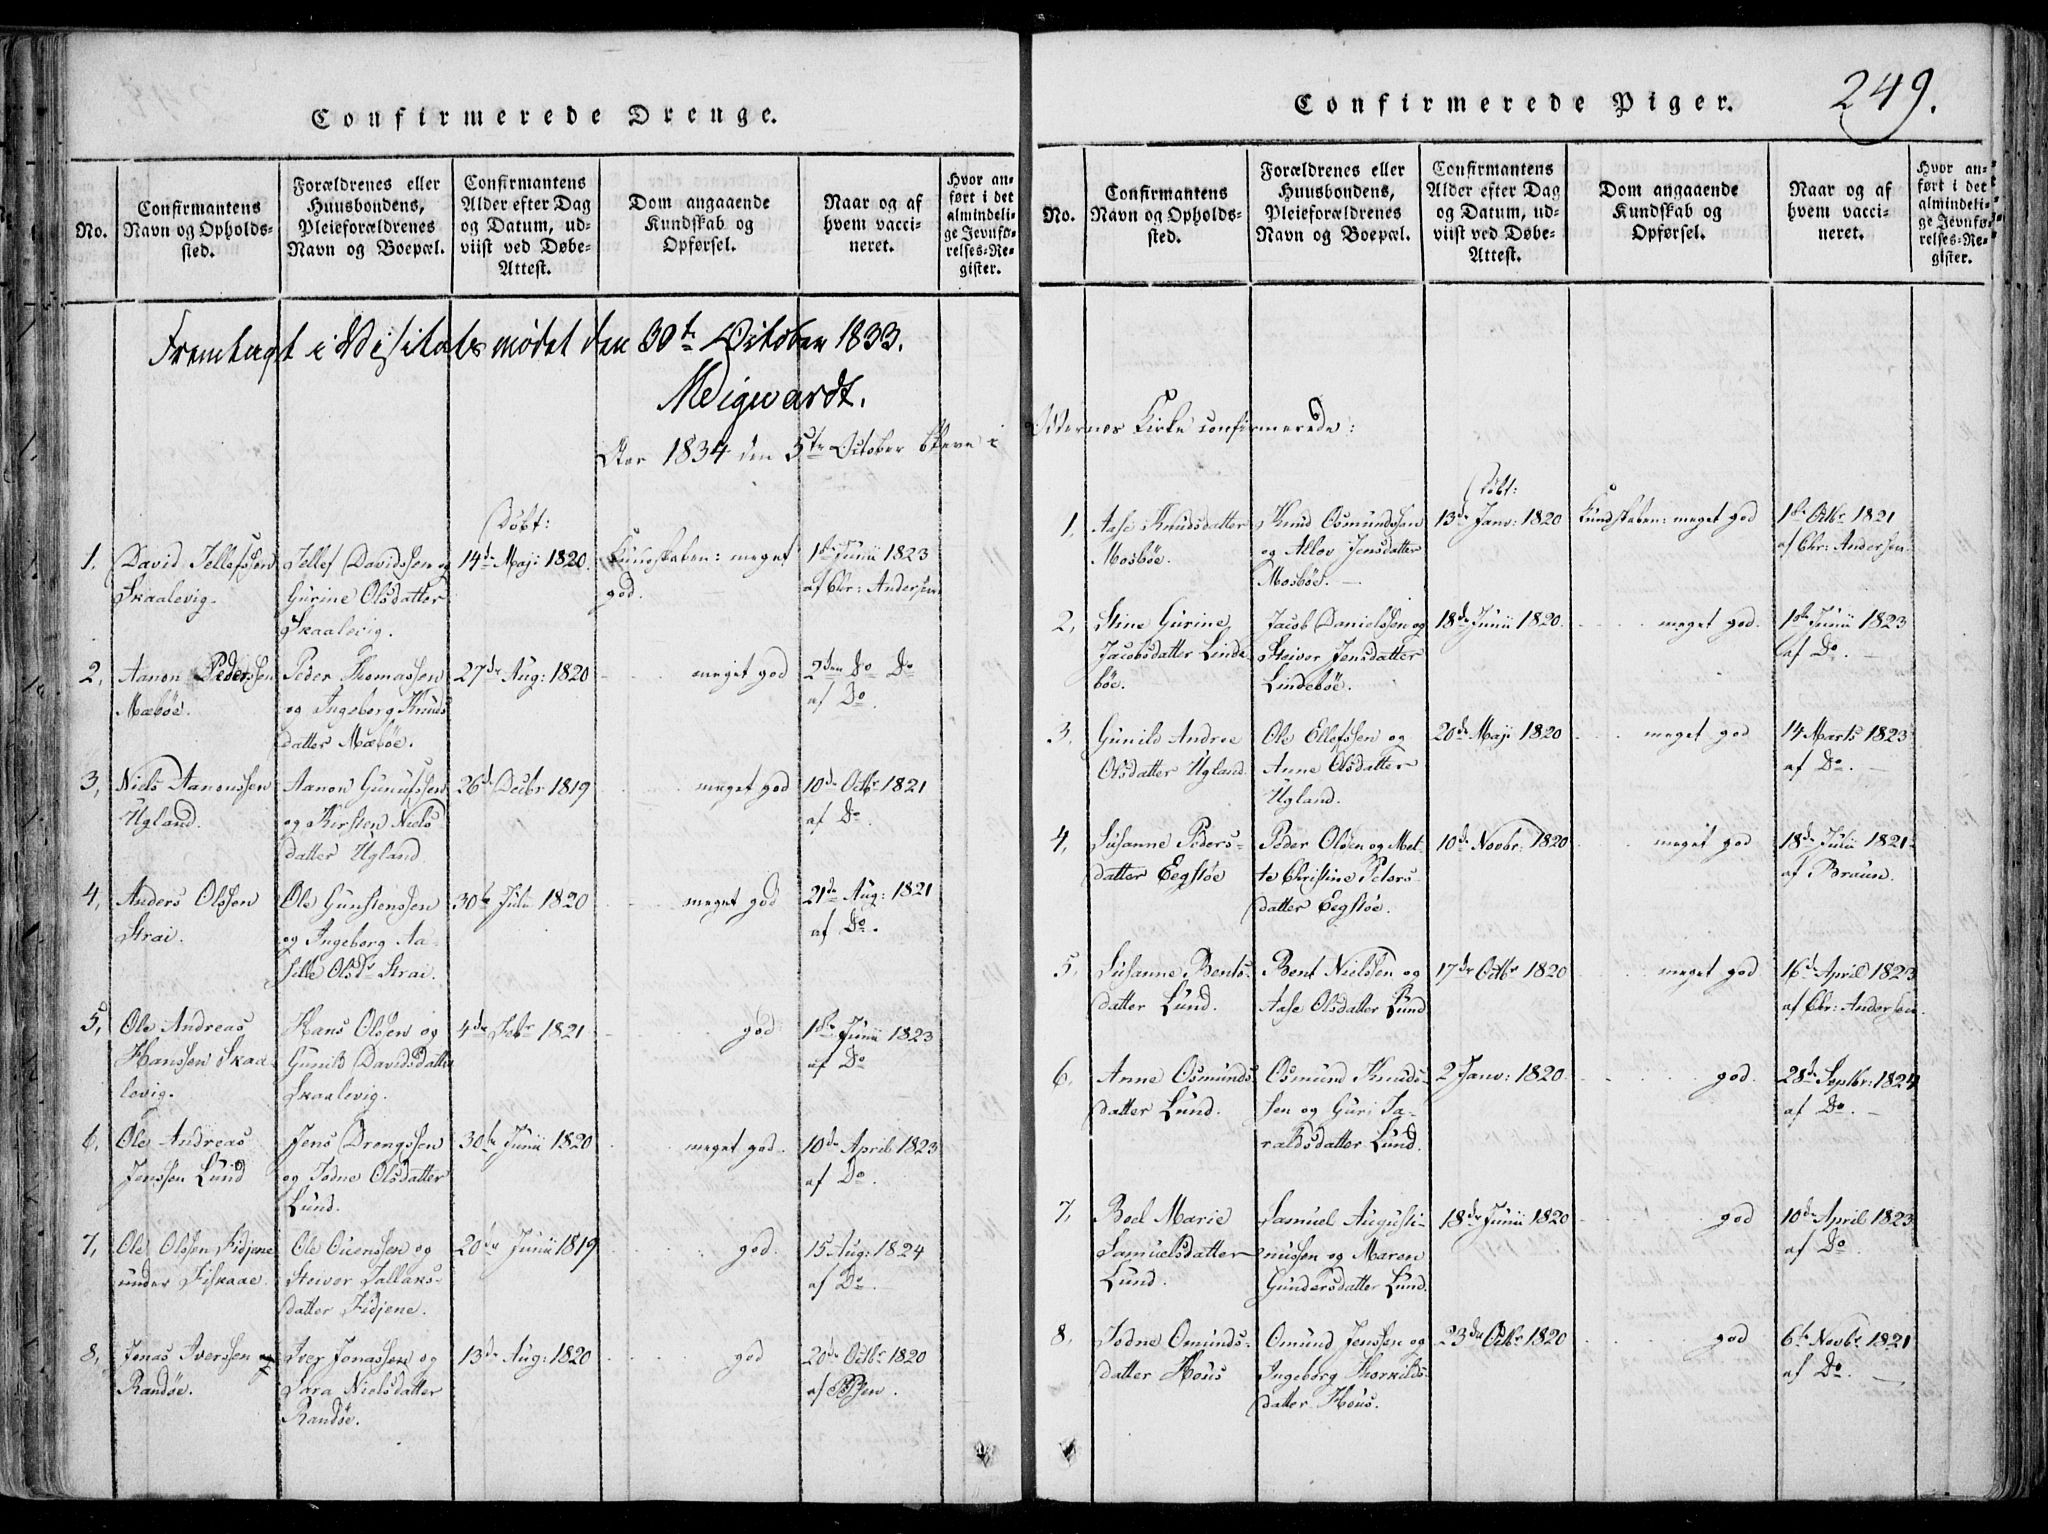 Confirmerede Drenge.
No.
Confirmantens
Navn og Opholds-
sted.
Forældrenes eller
Huusbondens,
Pleieforældrenes
Navn og Boepæl.
Confirmantens
Alder efter Dag
og Datum, ud-
viist ved Døbe-
Attest.
Dom angaaende
Kundskab og
Opførsel.
Naar og af
hvem vacci-
neret.
Hvor an-
ført i det
almindeli-
ge Jevnfø-
relses-Re-
gister.
Fremlagt i Visitatsmødet den 30te October 1833.
Aar 1834 den 5te October bleve i
Døbt:
1, David Tellefssen
Skaalevig.
Tellef Davidssen og
Gurine Olsdatter
Skaalevig.
14de Maji 1820.
Kundskaben: meget
god.
1ste Junii 1823
af Chr: Andersen
2, Aanon Pedersen
Mæbøe.
Peder Thomassen
og Ingeborg Knuds
datter Mæbøe.
27de Aug: 1820
meget god
2den Do Do
af Do
3, Niels Aanonssen
Ugland.
Aanon Gunufssen
og Kirsten Niels
datter Ugland.
26de Decbr 1819
meget god
10de Octbr 1821
af Do.
4, Anders Olssen
Strai.
Ole Gunstenssen
og Ingeborg Aa-
sille Olsdr Strai.
30te Julii 1820
meget god
21de Aug: 1821
af Do.
5, Ole Andreas
Hanssen Skaa-
levig.
Hans Olsen og
Gunild Davidsdatter
Skaalevig.
4de Febr 1821
god
1ste Junii 1823
af Do
6, Ole Andreas
Jenssen Lund
Jens Drengssen
og Todne Olsdatter
Lund.
30te Junii 1820
meget god.
10de April 1823
af Do.
7, Ole Olssen Fidjene
under Fiskaae.
Ole Ouenssen og
Steivor Tallaks-
datter Fidjene.
20de Junii 1819
god.
15 Aug: 1824
af Do.
8, Jonas Iverssen
Randøe.
Iver Jonassen og
Sara Nielsdatter
Randøe.
13de Aug: 1820
god
20de Octbr 1820
249.
Confirmerede Piger.
No.
Confirmantens
Navn og Opholds-
sted.
Forældrenes eller
Huusbondens,
Pleieforældrenes
Navn og Boepæl.
Confirmantens
Alder efter Dag
og Datum, ud-
viist ved Døbe-
Attest.
Dom angaaende
Kundskab og
Opførsel.
Naar og af
hvem vacci-
neret.
Hvor an-
ført i det
almindeli-
ge Jevnfø-
relses-Re-
gister.
Odernes Kirke confirmerede:
Døbt:
1, Aase Knudsdatter
Mosbøe.
Knud Osmundssen
og Allov Jensdatter
Mosbøe.
13de Janv: 1820
Kundskaben: meget god
1ste Octbr 1821
af Chr: Andersen.
2, Stine Gurine
Jacobsdatter Linde
bøe.
Jacob Danielssen og
Steivor Jensdatter
Lindebøe.
18de Junii 1820.
meget god.
1ste Junii 1823
af Do.
3, Gunild Andree
Olsdatter Ugland.
Ole Ellefssen og
Anne Olsdatter
Ugland.
20de Maji 1820
meget god
14 Marts 1823
af Do.
4, Susanne Peders-
datter Eegstøe
Peder Olsen og Met-
te Christine Peters-
datter Eegstøe.
10de Novbr: 1820
meget god
18de Julii 1821
af Braun.
5, Susanne Bents-
datter Lund.
Bent Nielssen og
Aase Olsdatter Lund
17de Octbr 1820
meget god
16de April 1823
af Chr: Andersen.
6, Anne Osmunds-
datter Lund.
Osmund Knuds-
sen og Guri Ta-
raldsdatter Lund.
2 Janv: 1820.
god.
28de Septbr: 1824
af Do.
7, Boel Marie
Samuelsdatter
Lund.
Samuel Augusti-
nussen og Maren
Gundersdatter Lund.
18de Junii 1820
god
10de April 1823
af Do.
8, Todne Omunds-
datter Høus
Omund Jenssen og
Ingeborg Thorkilds-
datter Høus.
23de Octbr 1820
god
6te Novbr 1821
af Do.